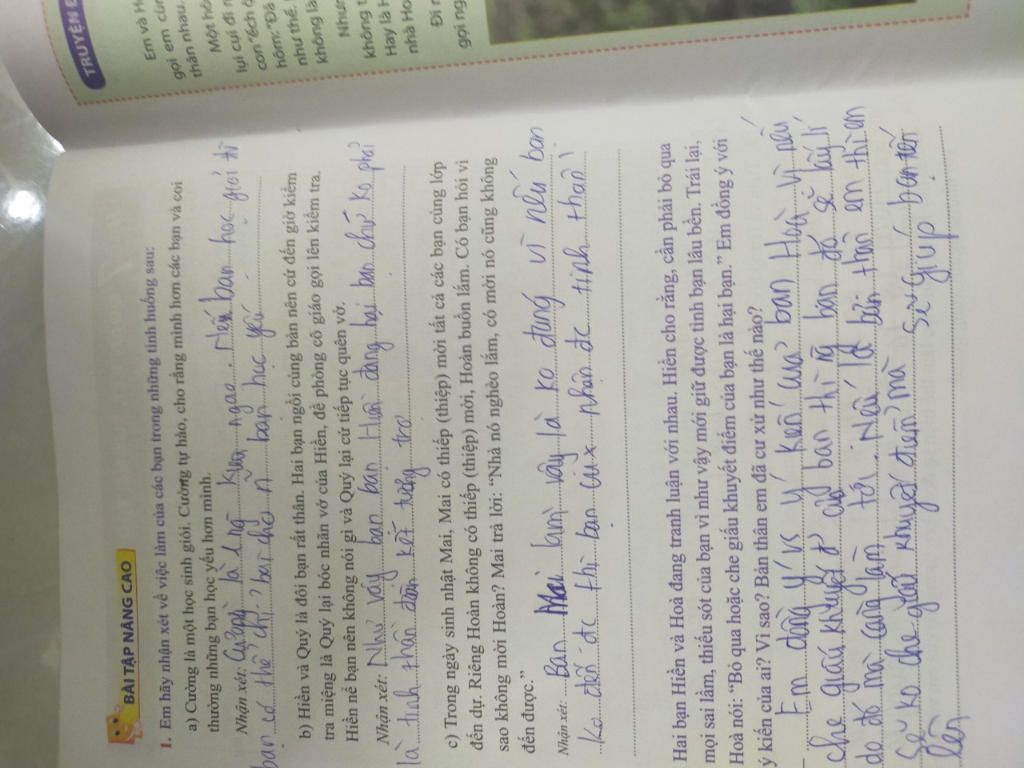 TRUYỆN Đ
Em và H
gọi em cùn
thân nhau.
Một hô
lụi cụi đi r
con "ếch ộ
hôm: "Đã
như thế.
không là
Nhưn
không t
Hay là H
nhà Ho
Đi n
gọi ng
BÀI TẬP NÂNG CAO
1. Em hãy nhận xét về việc làm của các bạn trong những tình huống sau:
a) Cường là một học sinh giỏi. Cường tự hào, cho rằng mình hơn các bạn và coi
thường những bạn học yếu hơn mình.
Nhận xét: Cường là 1 ng kiêu ngạo. nếu bạn học giỏi thì
bạn có thể chỉ bài cho n~ bạn học yếu.
b) Hiền và Quý là đôi bạn rất thân. Hai bạn ngồi cùng bàn nên cứ đến giờ kiểm
tra miệng là Quý lại bóc nhãn vở của Hiền, đề phòng cô giáo gọi lên kiểm tra.
Hiền nể bạn nên không nói gì và Quý lại cứ tiếp tục quên vở.
Nhận xét: Như vậy bạn Hiền đang hại bạn chứ ko phải
là tinh thần đoàn kết tương trợ
c) Trong ngày sinh nhật Mai, Mai có thiếp (thiệp) mời tất cả các bạn cùng lớp
đến dự. Riêng Hoàn không có thiếp (thiệp) mời, Hoàn buồn lắm. Có bạn hỏi vì
sao không mời Hoàn? Mai trả lời: "Nhà nó nghèo lắm, có mời nó cũng không
đến được."
Nhận xét: Bạn Mai làm vậy là ko đúng vì nếu bạn
ko đến đc thì bạn cux nhận đc tinh thần
Hai bạn Hiền và Hoà đang tranh luận với nhau. Hiền cho rằng, cần phải bỏ qua
mọi sai lầm, thiếu sót của bạn vì như vậy mới giữ được tình bạn lâu bền. Trái lại,
Hoà nói: "Bỏ qua hoặc che giấu khuyết điểm của bạn là hại bạn." Em đồng ý với
ý kiến của ai? Vì sao? Bản thân em đã cư xử như thế nào?
Em đồng ý vs ý kiến của bạn Hoà vì nếu
che giấu khuyết đ' của bạn thì ng bạn đó sẽ
do đó mà càng lấn tới. Nếu là bản thân em thì em
sẽ ko che giấu khuyết điểm mà sẽ giúp bạn tốt
lên